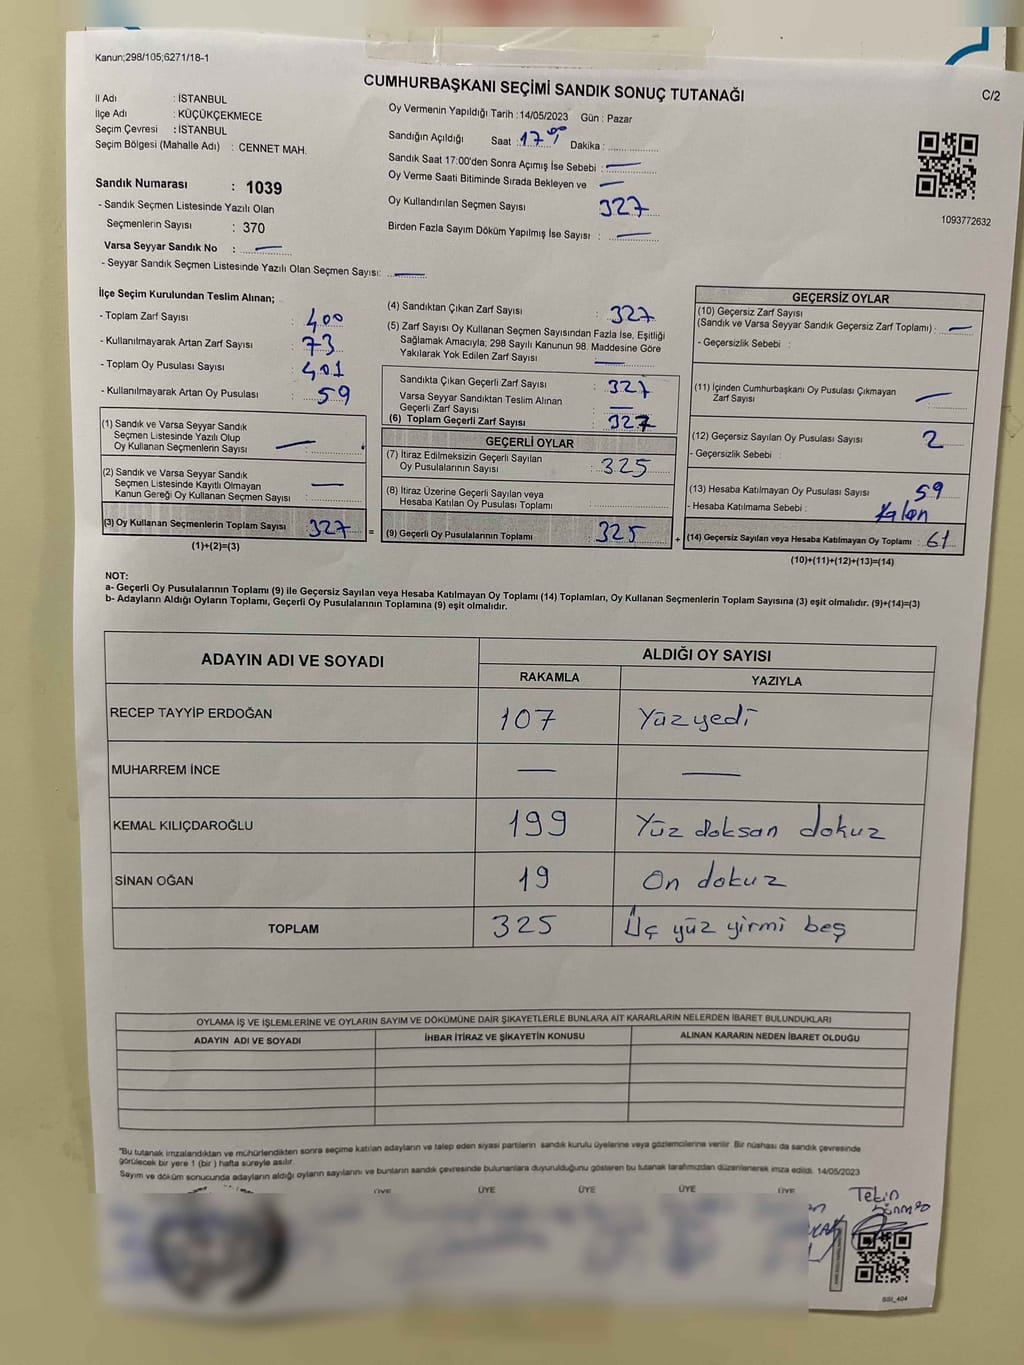 Kanun;298/105;6271/18-1
CUMHURBAŞKANI SEÇİMİ SANDIK SONUÇ TUTANAĞI
C/2
İl Adı : İSTANBUL
İlçe Adı : KÜÇÜKÇEKMECE
Seçim Çevresi : İSTANBUL
Seçim Bölgesi (Mahalle Adı) : CENNET MAH.
Sandık Numarası : 1039
- Sandık Seçmen Listesinde Yazılı Olan
Seçmenlerin Sayısı : 370
Varsa Seyyar Sandık No : —
- Seyyar Sandık Seçmen Listesinde Yazılı Olan Seçmen Sayısı: —
Oy Vermenin Yapıldığı Tarih :14/05/2023 Gün : Pazar
Sandığın Açıldığı Saat :17 00 Dakika :
Sandık Saat 17:00'den Sonra Açımış İse Sebebi : —
Oy Verme Saati Bitiminde Sırada Bekleyen ve —
Oy Kullandırılan Seçmen Sayısı 327
Birden Fazla Sayım Döküm Yapılmış İse Sayısı : —
1093772632
İlçe Seçim Kurulundan Teslim Alınan;
- Toplam Zarf Sayısı : 400
- Kullanılmayarak Artan Zarf Sayısı : 73
- Toplam Oy Pusulası Sayısı : 401
- Kullanılmayarak Artan Oy Pusulası : 59
(1) Sandık ve Varsa Seyyar Sandık
Seçmen Listesinde Yazılı Olup
Oy Kullanan Seçmenlerin Sayısı : —
(2) Sandık ve Varsa Seyyar Sandık
Seçmen Listesinde Kayıtlı Olmayan
Kanun Gereği Oy Kullanan Seçmen Sayısı : —
(3) Oy Kullanan Seçmenlerin Toplam Sayısı 327 =
(1)+(2)=(3)
(4) Sandıktan Çıkan Zarf Sayısı : 327
(5) Zarf Sayısı Oy Kullanan Seçmen Sayısından Fazla İse, Eşitliği
Sağlamak Amacıyla; 298 Sayılı Kanunun 98. Maddesine Göre
Yakılarak Yok Edilen Zarf Sayısı : —
Sandıkta Çıkan Geçerli Zarf Sayısı : 327
Varsa Seyyar Sandıktan Teslim Alınan
Geçerli Zarf Sayısı : —
(6) Toplam Geçerli Zarf Sayısı : 327
GEÇERLİ OYLAR
(7) İtiraz Edilmeksizin Geçerli Sayılan
Oy Pusulalarının Sayısı : 325
(8) İtiraz Üzerine Geçerli Sayılan veya
Hesaba Katılan Oy Pusulası Toplamı :
(9) Geçerli Oy Pusulalarının Toplamı : 325 +
GEÇERSİZ OYLAR
(10) Geçersiz Zarf Sayısı
(Sandık ve Varsa Seyyar Sandık Geçersiz Zarf Toplamı) : —
- Geçersizlik Sebebi :
(11) İçinden Cumhurbaşkanı Oy Pusulası Çıkmayan
Zarf Sayısı : —
(12) Geçersiz Sayılan Oy Pusulası Sayısı : 2
- Geçersizlik Sebebi :
(13) Hesaba Katılmayan Oy Pusulası Sayısı : 59
- Hesaba Katılmama Sebebi : Kalan
(14) Geçersiz Sayılan veya Hesaba Katılmayan Oy Toplamı : 61
(10)+(11)+(12)+(13)=(14)
NOT:
a- Geçerli Oy Pusulalarının Toplamı (9) ile Geçersiz Sayılan veya Hesaba Katılmayan Oy Toplamı (14) Toplamları, Oy Kullanan Seçmenlerin Toplam Sayısına (3) eşit olmalıdır. (9)+(14)=(3)
b- Adayların Aldığı Oyların Toplamı, Geçerli Oy Pusulalarının Toplamına (9) eşit olmalıdır.
ADAYIN ADI VE SOYADI ALDIĞI OY SAYISI
RAKAMLA YAZIYLA
RECEP TAYYİP ERDOĞAN 107 Yüz yedi
MUHARREM İNCE — —
KEMAL KILIÇDAROĞLU 199 Yüz doksan dokuz
SİNAN OĞAN 19 On dokuz
TOPLAM 325 Üç yüz yirmi beş
OYLAMA İŞ VE İŞLEMLERİNE VE OYLARIN SAYIM VE DÖKÜMÜNE DAİR ŞİKAYETLERLE BUNLARA AİT KARARLARIN NELERDEN İBARET BULUNDUKLARI
ADAYIN ADI VE SOYADI İHBAR İTİRAZ VE ŞİKAYETİN KONUSU ALINAN KARARIN NEDEN İBARET OLDUĞU
"Bu tutanak imzalandıktan ve mühürlendikten sonra seçime katılan adayların ve talep eden siyasi partilerin sandık kurulu üyelerine veya gözlemcilerine verilir. Bir nüshası da sandık çevresinde
görülecek bir yere 1 (bir) hafta süreyle asılır.
Sayım ve döküm sonucunda adayların aldığı oyların sayılarını ve bunların sandık çevresinde bulunanlara duyurulduğunu gösteren bu tutanak tarafımızdan düzenlenerek imza edildi. 14/05/2023
ÜYE ÜYE ÜYE ÜYE ÜYE
Tekin
SSI_404